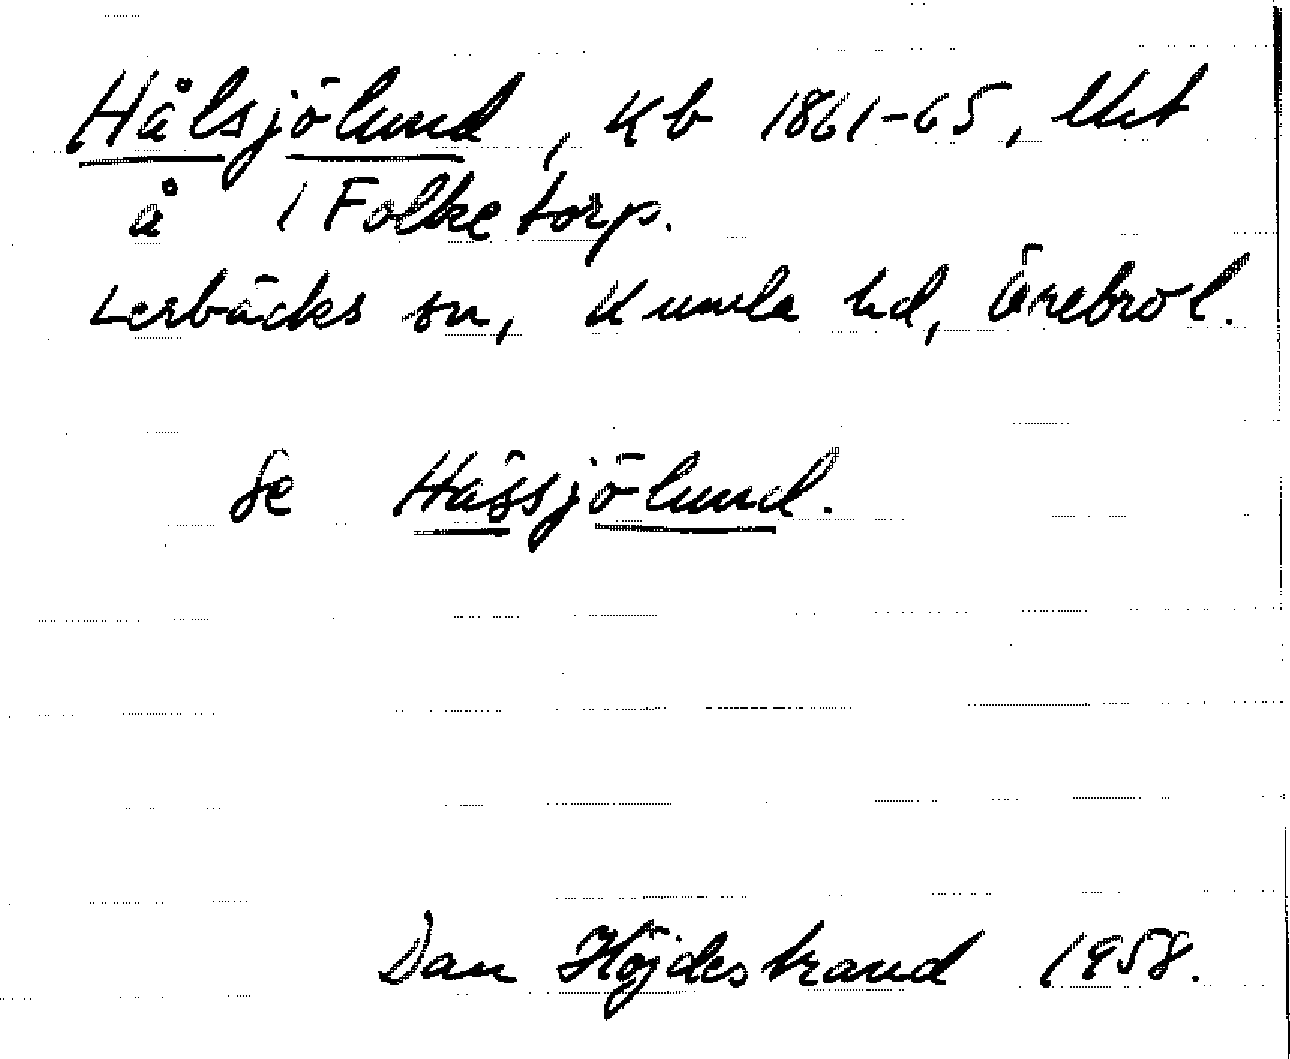 Hålsjölund, Kb 1861-65, lht
å 1 Folketorp.
Lerbäcks sn, Kumla hd, Örebro l.
Se Hässjölund.
Dan Höjdestrand 1958.